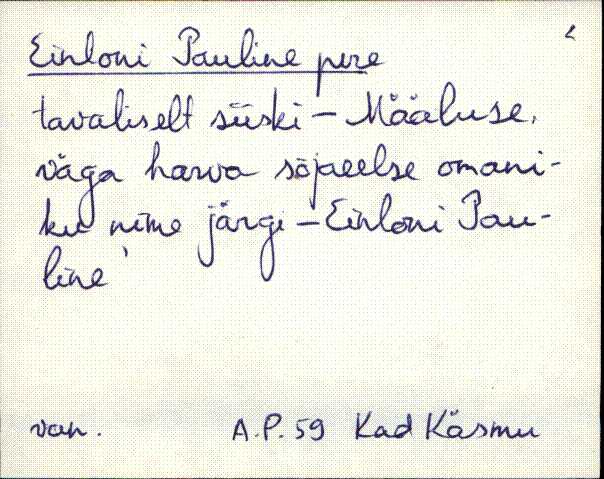 Einloni Pauline pere
tavaliselt siiski – Määluse,
väga harva sõjaeelse omani-
ku nime järgi – Einloni Pau-
line
van. A.P. 59 Kad Käsmu